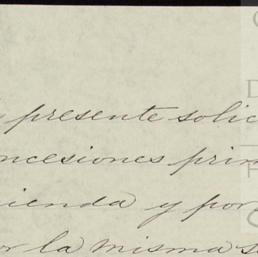 presente solic
ncesiones prim
ienda y por
or la misma s